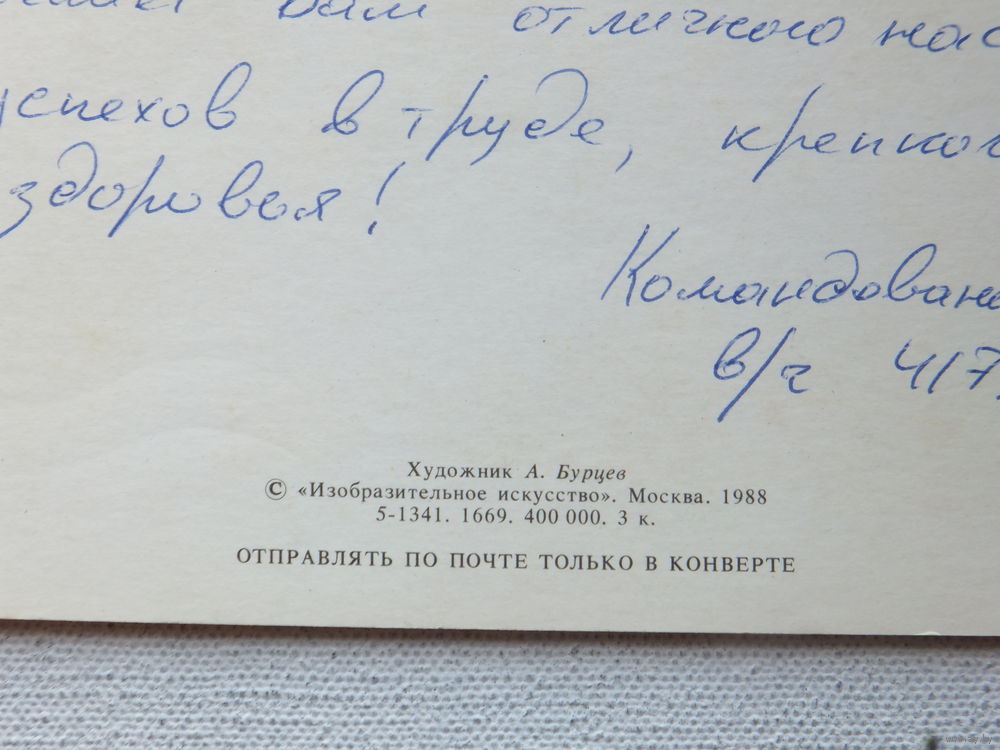 Вам отличного нас
успехов в труде, крепког
здоровья!
Командован
в/ч 417
Художник А. Бурцев
© «Изобразительное искусство». Москва. 1988
5-1341. 1669. 400 000. 3 к.
ОТПРАВЛЯТЬ ПО ПОЧТЕ ТОЛЬКО В КОНВЕРТЕ